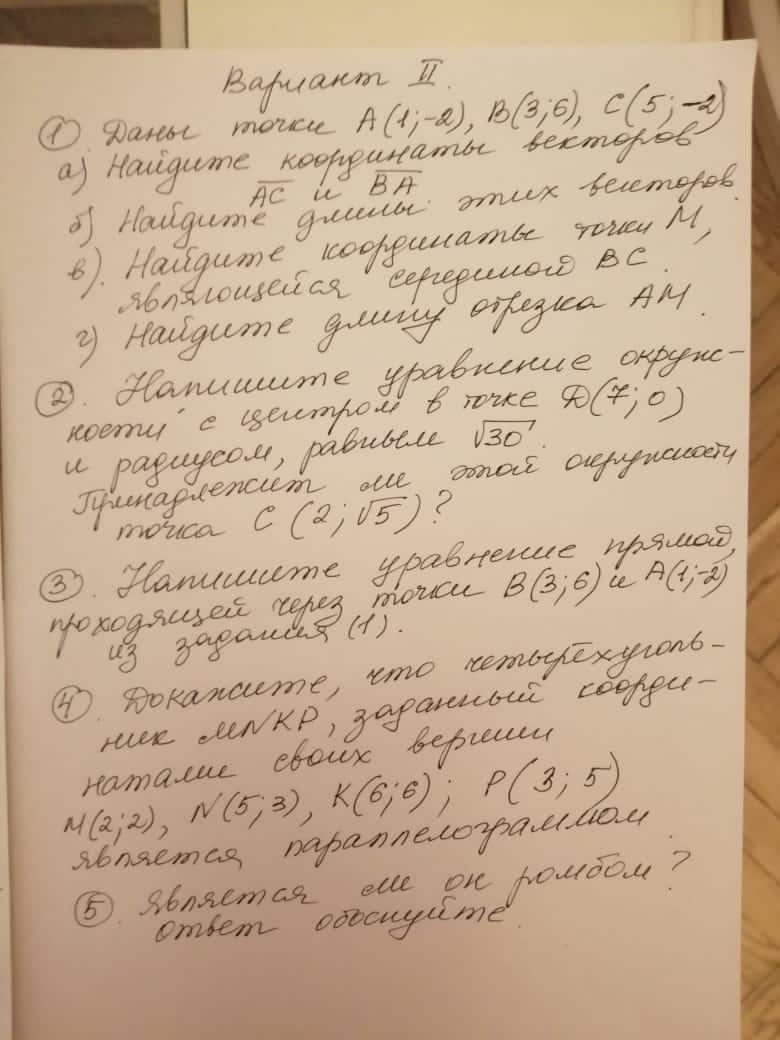 Вариант II.
① Даны точки A(1;-2), B(3;6), C(5;-2)
а) Найдите координаты векторов
AC и BA
б) Найдите длины этих векторов.
в). Найдите координаты точки M,
являющейся серединой BC.
г) Найдите длину отрезка AM.
②. Напишите уравнение окруж-
ности с центром в точке D(7;0)
и радиусом, равным √30.
Принадлежит ли этой окружности
точка C (2;√5)?
③. Напишите уравнение прямой,
проходящей через точки B(3;6) и A(1;-2)
из задания (1).
④. Докажите, что четырёхуголь-
ник MNKP, заданный коорди-
натами своих вершин
M(2;2), N(5;3), K(6;6); P(3;5)
является параллелограммом.
⑤. Является ли он ромбом?
ответ обоснуйте.